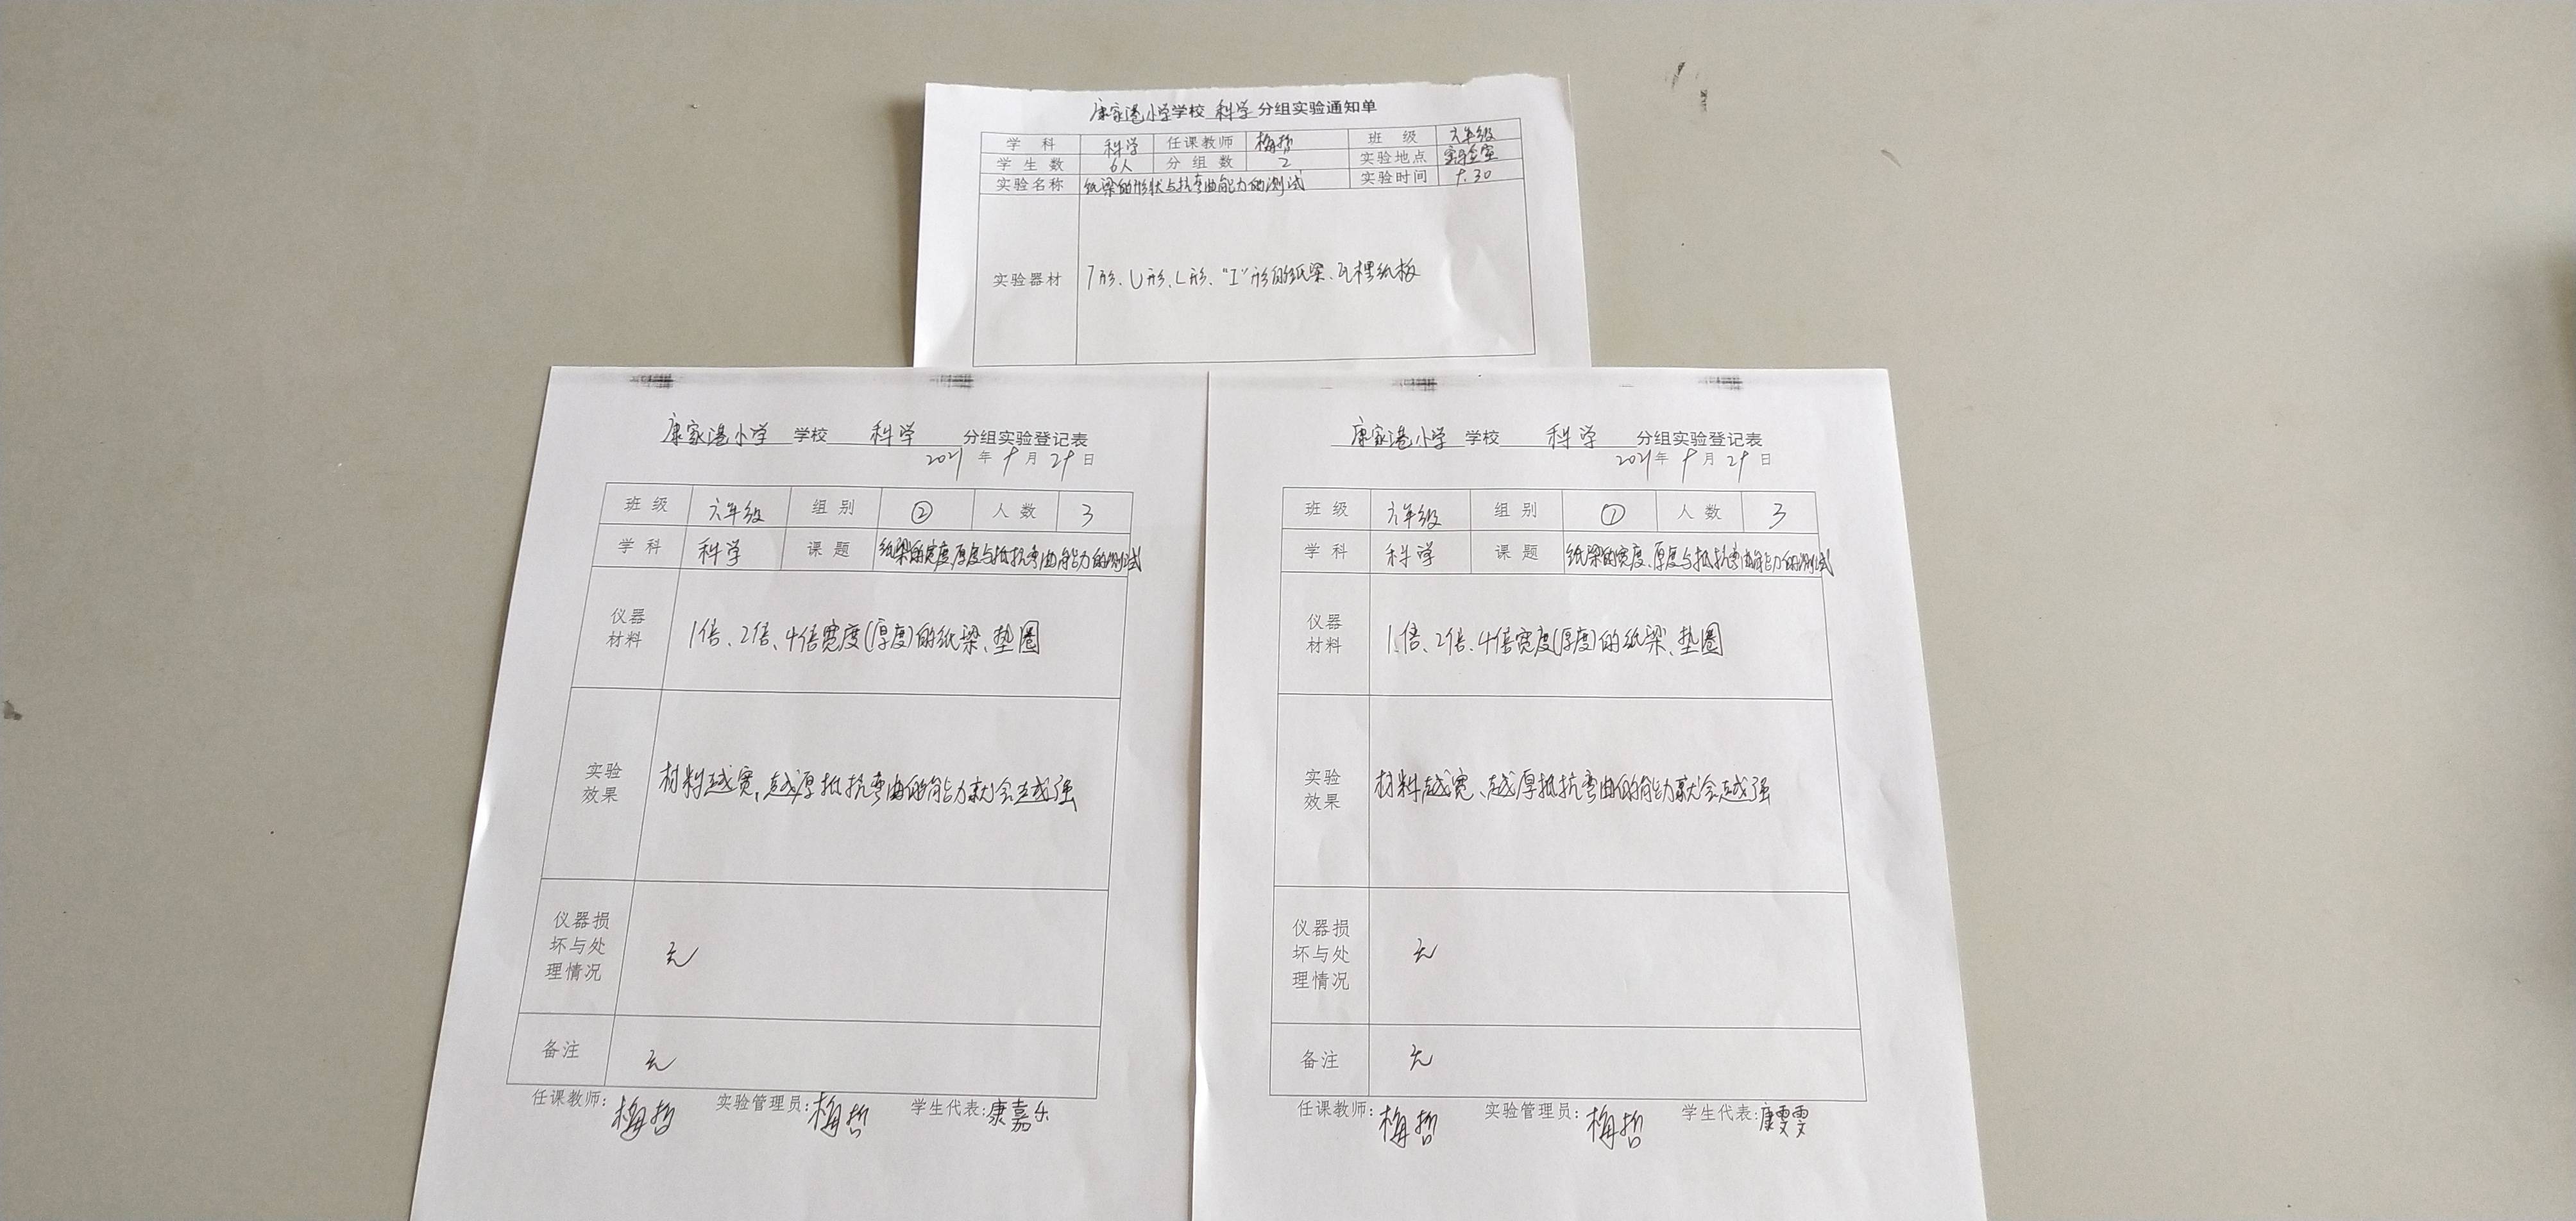 康家港小学学校 科学 分组实验通知单
学 科 科学 任课教师 梅哲 班 级 六年级
学 生 数 6人 分 组 数 2 实验地点 实验室
实验名称 纸梁的形状与抗弯曲能力的测试 实验时间 9.30
实验器材 T形、U形、L形、“工”形的纸梁、瓦楞纸板
康家港小学 学校 科学 分组实验登记表
2021 年 9 月 29 日
班 级 六年级 组 别 ② 人 数 3
学 科 科学 课 题 纸梁的宽度、厚度与抵抗弯曲能力的测试
仪器
材料
1倍、2倍、4倍宽度(厚度)的纸梁、垫圈
实验
效果
材料越宽、越厚抵抗弯曲的能力就会越强
仪器损
坏与处
理情况
无
备注 无
任课教师: 梅哲 实验管理员: 梅哲 学生代表: 康嘉乐
康家港小学 学校 科学 分组实验登记表
2021 年 9 月 29 日
班 级 六年级 组 别 ① 人 数 3
学 科 科学 课 题 纸梁的宽度、厚度与抵抗弯曲能力的测试
仪器
材料
1倍、2倍、4倍宽度(厚度)的纸梁、垫圈
实验
效果
材料越宽、越厚抵抗弯曲的能力就会越强
仪器损
坏与处
理情况
无
备注 无
任课教师: 梅哲 实验管理员: 梅哲 学生代表: 康雯雯